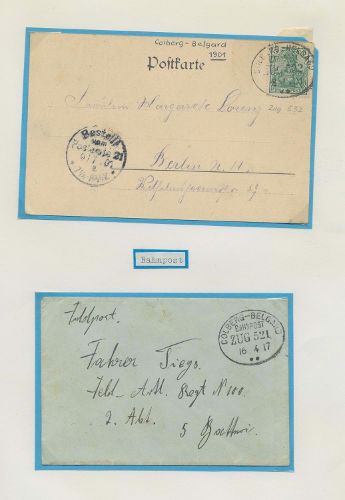 Colberg - Belgard
1901
Postkarte
COLBERG-BELGARD
Fräulein Margarete Lorenz
Zug 532
Bestellt
vom
Postamte 21
Berlin N.W.
Bahnpost
Feldpost.
COLBERG-BELGARD
BAHNPOST
ZUG 521
16 4 17
Fahrer Tiegs
Feld-Artl. Regt N 100
2. Abt.
5 Battri.